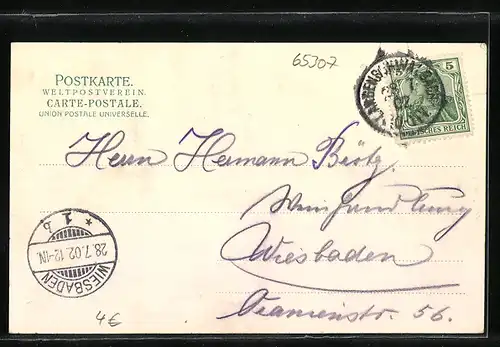 65307
POSTKARTE.
WELTPOSTVEREIN.
CARTE-POSTALE.
UNION POSTALE UNIVERSELLE.
LANGENSCHWALBACH
5
DEUTSCHES REICH
Herrn Hermann
Weinhandlung
Wiesbaden
56.
* 1 b
28.7.02.12-1N.
WIESBADEN
4€